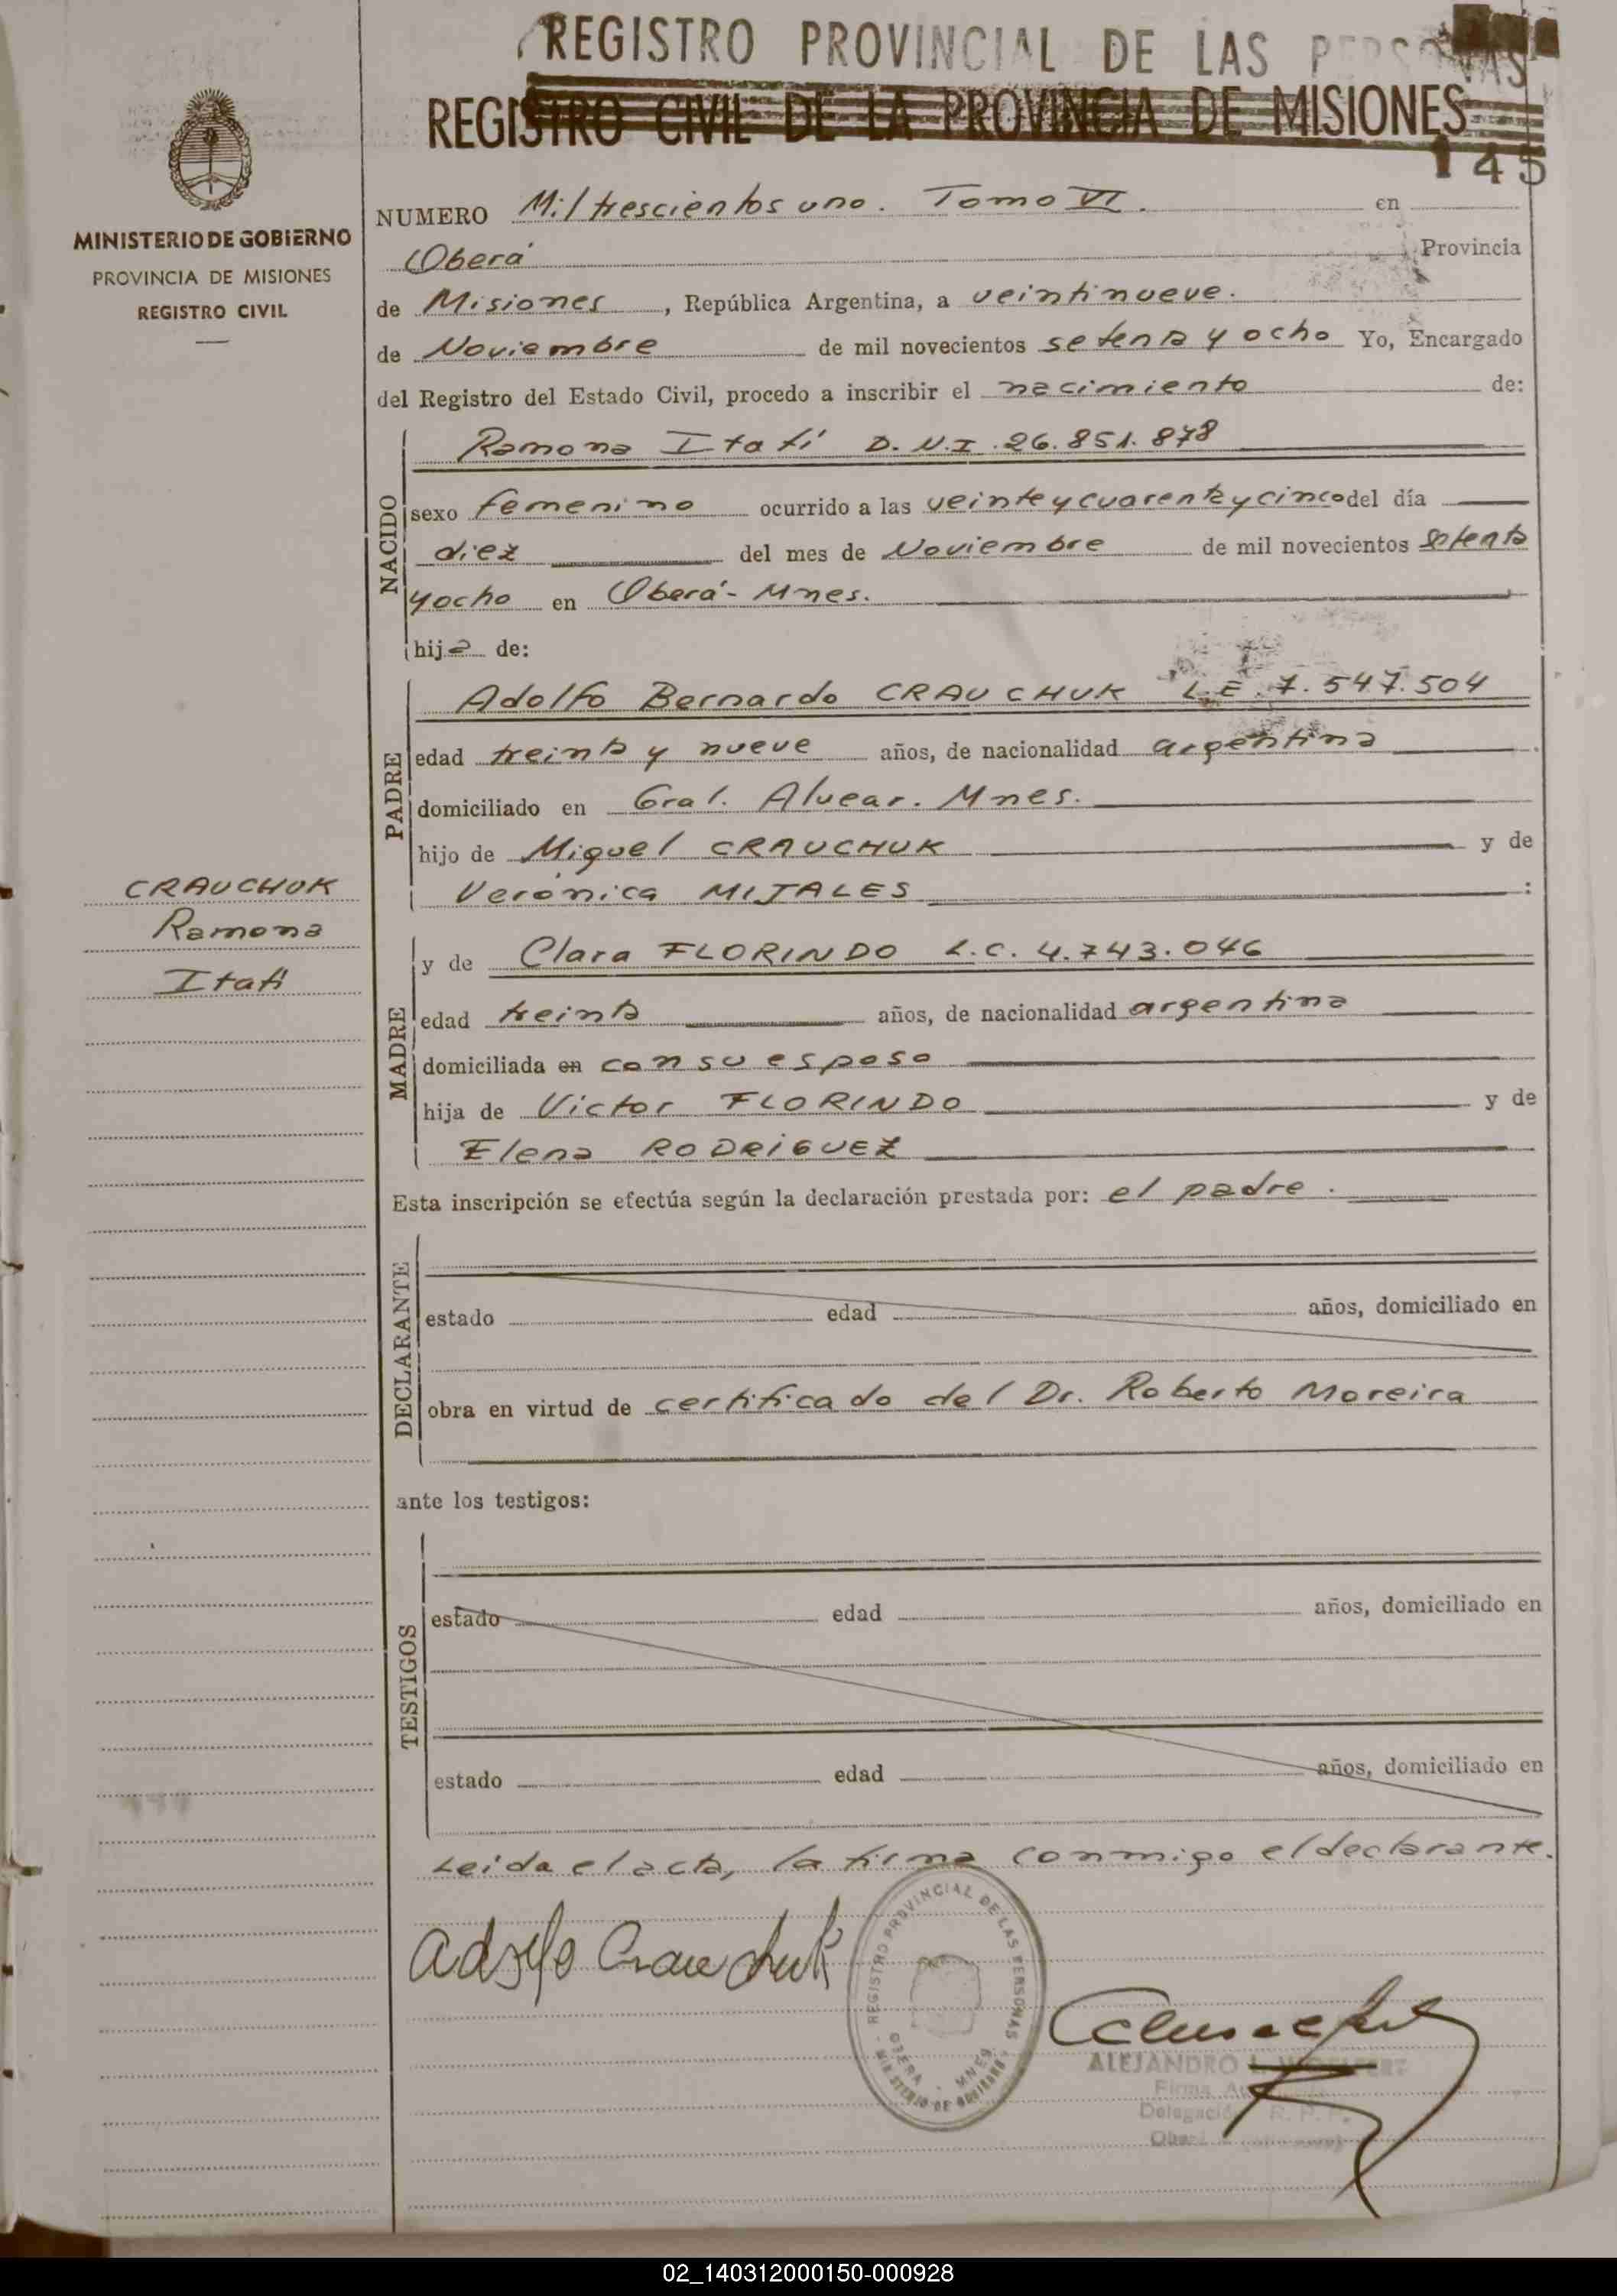 REGISTRO PROVINCIAL DE LAS PERSONAS
REGISTRO CIVIL DE LA PROVINCIA DE MISIONES
145
MINISTERIO DE GOBIERNO
PROVINCIA DE MISIONES
REGISTRO CIVIL
NUMERO Mil trescientos uno. Tomo VI. en
Oberá Provincia
de Misiones, República Argentina, a veintinueve.
de Noviembre de mil novecientos setenta y ocho Yo, Encargado
del Registro del Estado Civil, procedo a inscribir el nacimiento de:
NACIDO
Ramona Itatí D.N.I. 26.851.878
sexo femenino ocurrido a las veinte y cuarenta y cinco del día
diez del mes de Noviembre de mil novecientos setenta
y ocho en Oberá - Mnes.
hija de:
PADRE
Adolfo Bernardo CRAUCHUK L.E. 7.547.504
edad treinta y nueve años, de nacionalidad argentina
domiciliado en Gral. Alvear. Mnes.
hijo de Miguel CRAUCHUK y de
Verónica MIJALES :
CRAUCHUK
Ramona
Itatí
MADRE
y de Clara FLORINDO L.C. 4.743.046
edad treinta años, de nacionalidad argentina
domiciliada en con su esposo
hija de Victor FLORINDO y de
Elena RODRIGUEZ
Esta inscripción se efectúa según la declaración prestada por: el padre.
DECLARANTE
estado edad años, domiciliado en
obra en virtud de certificado del Dr. Roberto Moreira
ante los testigos:
TESTIGOS
estado edad años, domiciliado en
estado edad años, domiciliado en
Leida el acta, la firma conmigo el declarante.
Adolfo Crauchuk
REGISTRO PROVINCIAL DE LAS PERSONAS
OBERA - MNES.
MINISTERIO DE GOBIERNO
ALEJANDRO L.
Firma
Delegación R. P. P.
02_140312000150-000928